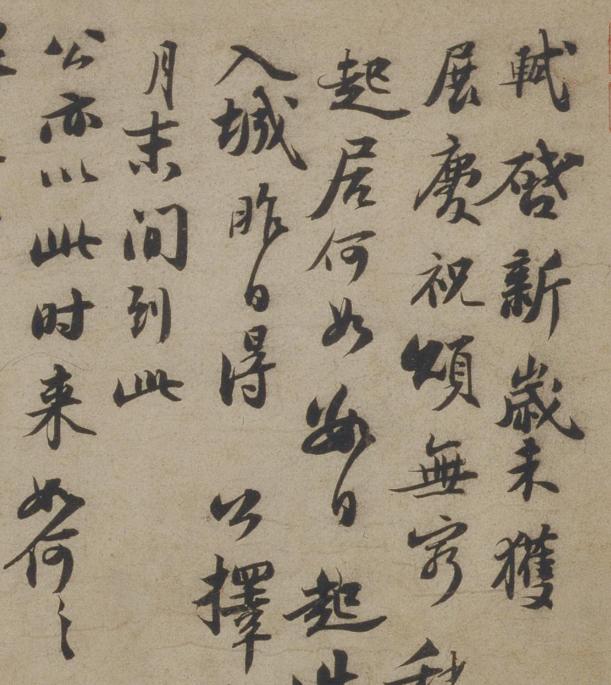 軾啓新歲未獲
展慶祝頌無窮
起居何如數日起
入城昨日得公擇
月末间到此
公亦以此时来如何〻